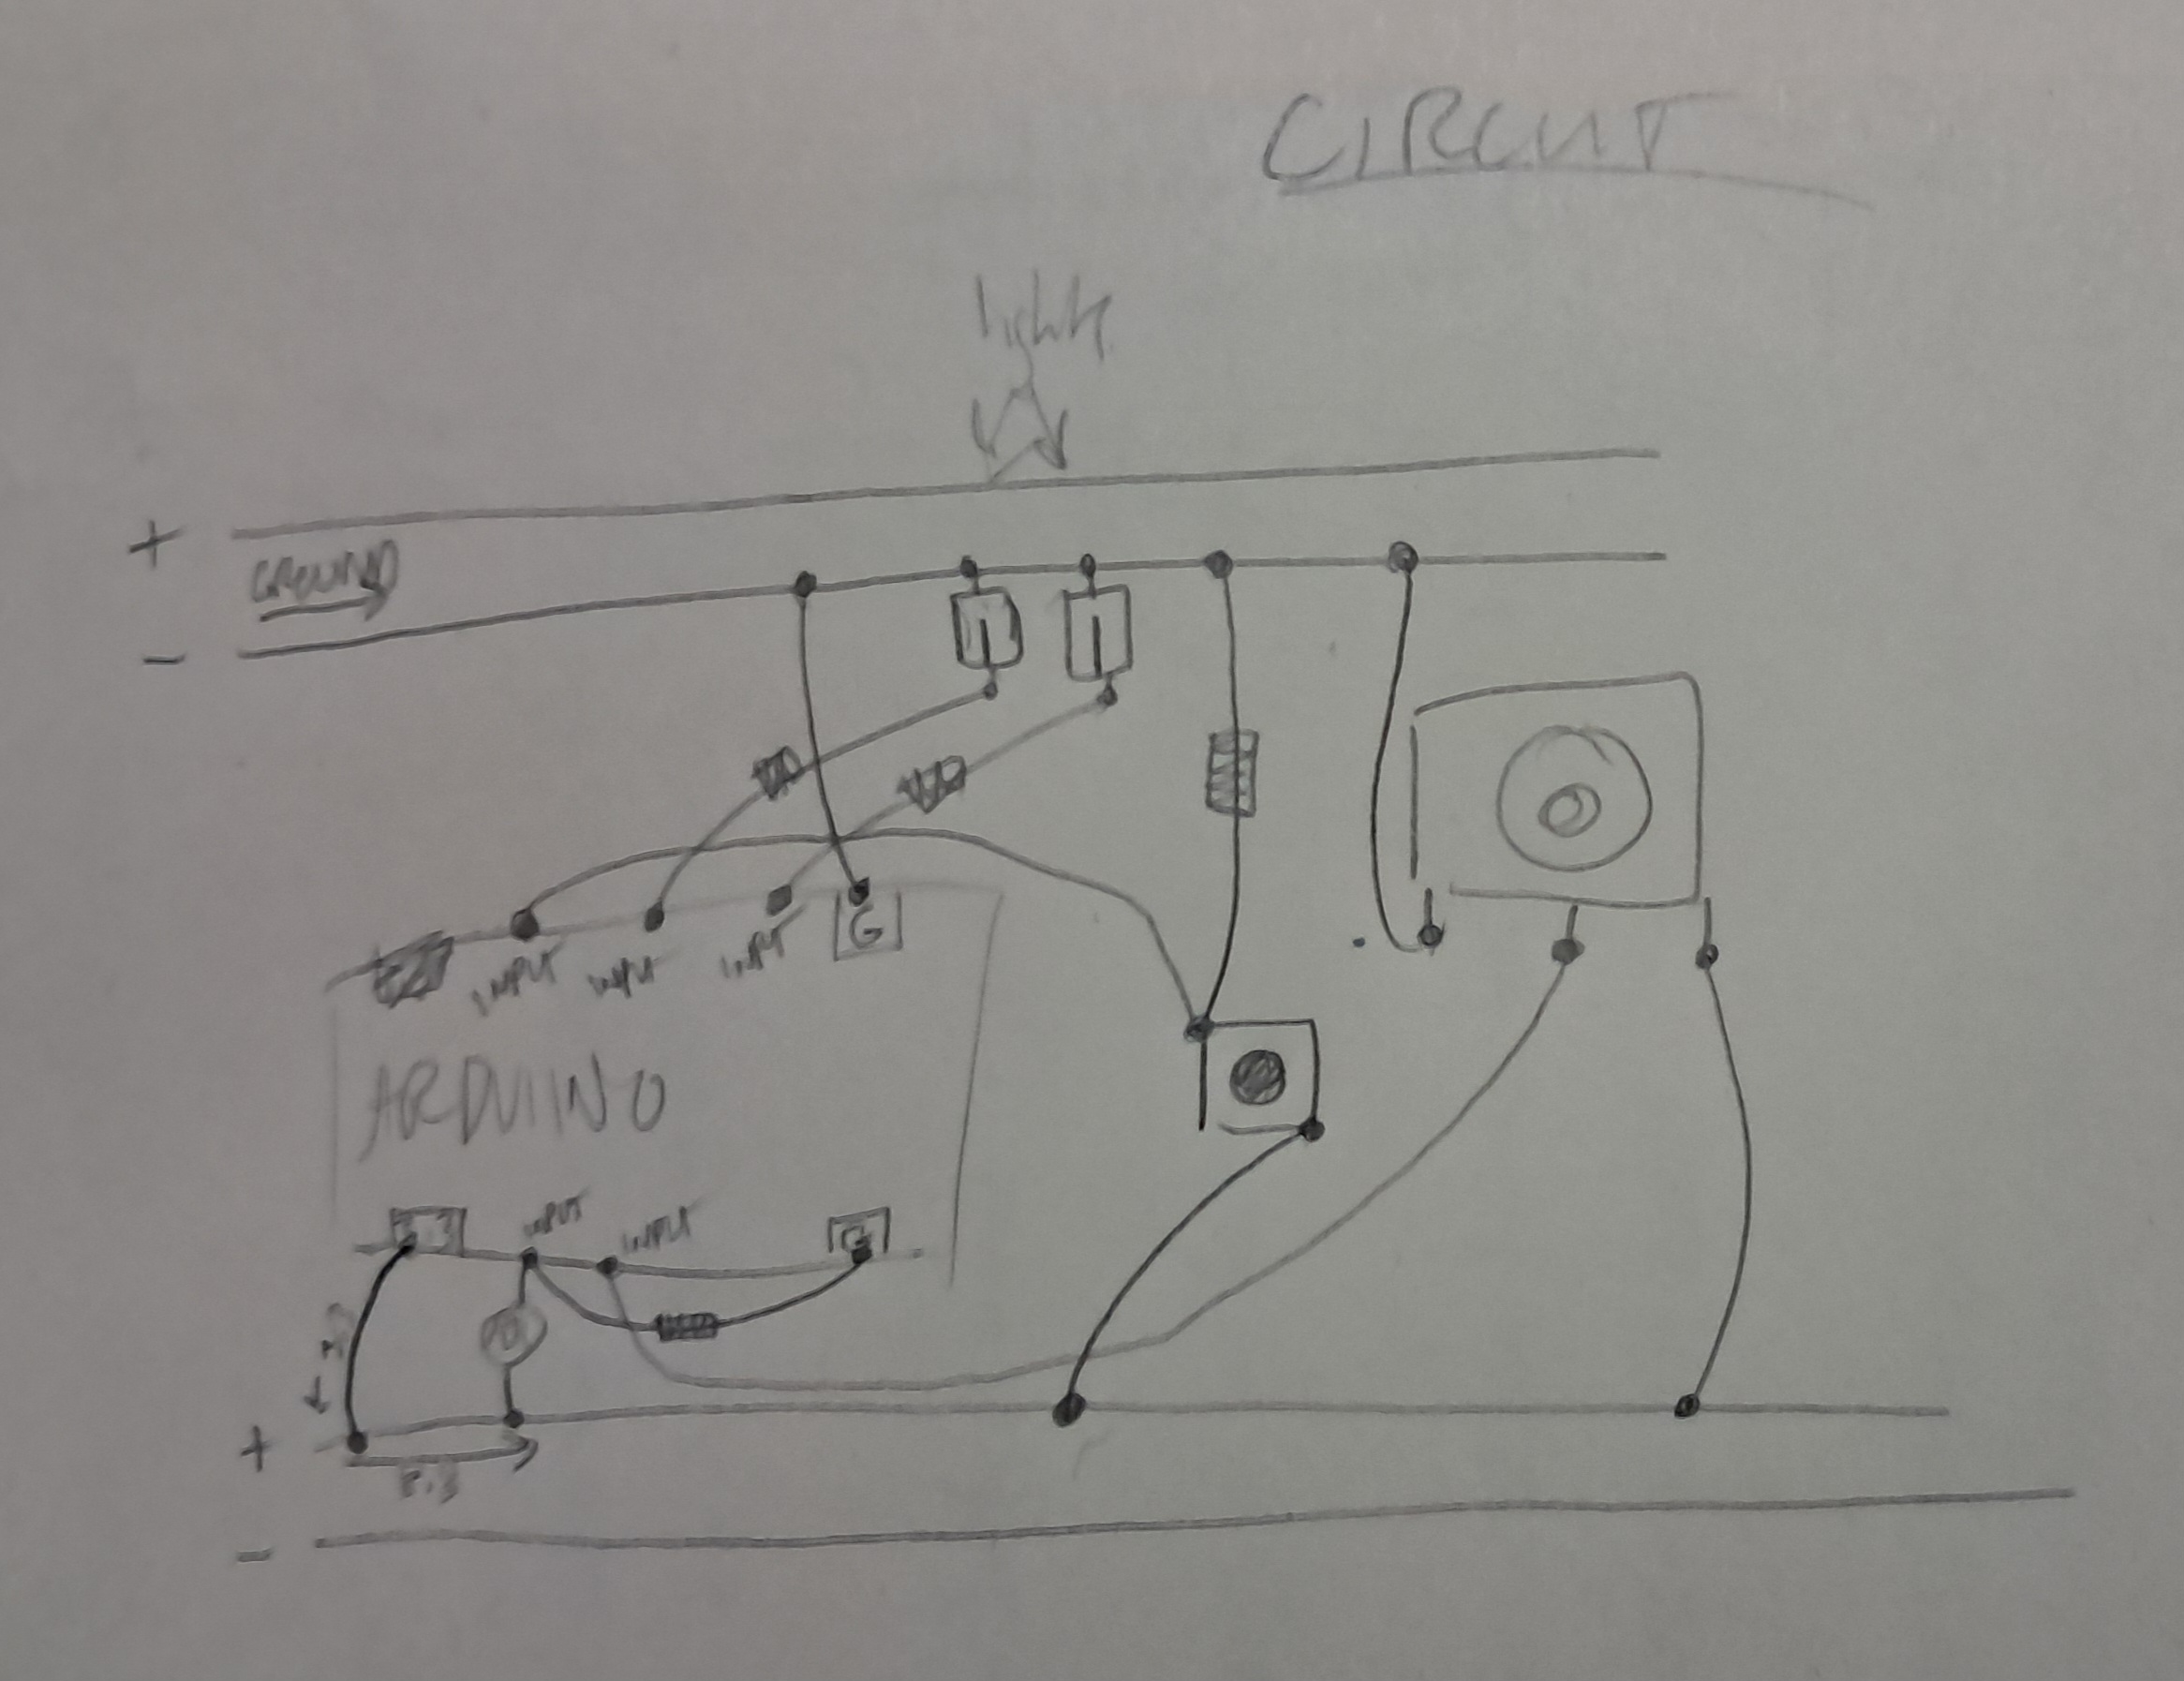 CIRCUT
lights
+
GROUND
-
INPUT
INPUT
INPUT
G
ARDUINO
INPUT
INPUT
G
+
-